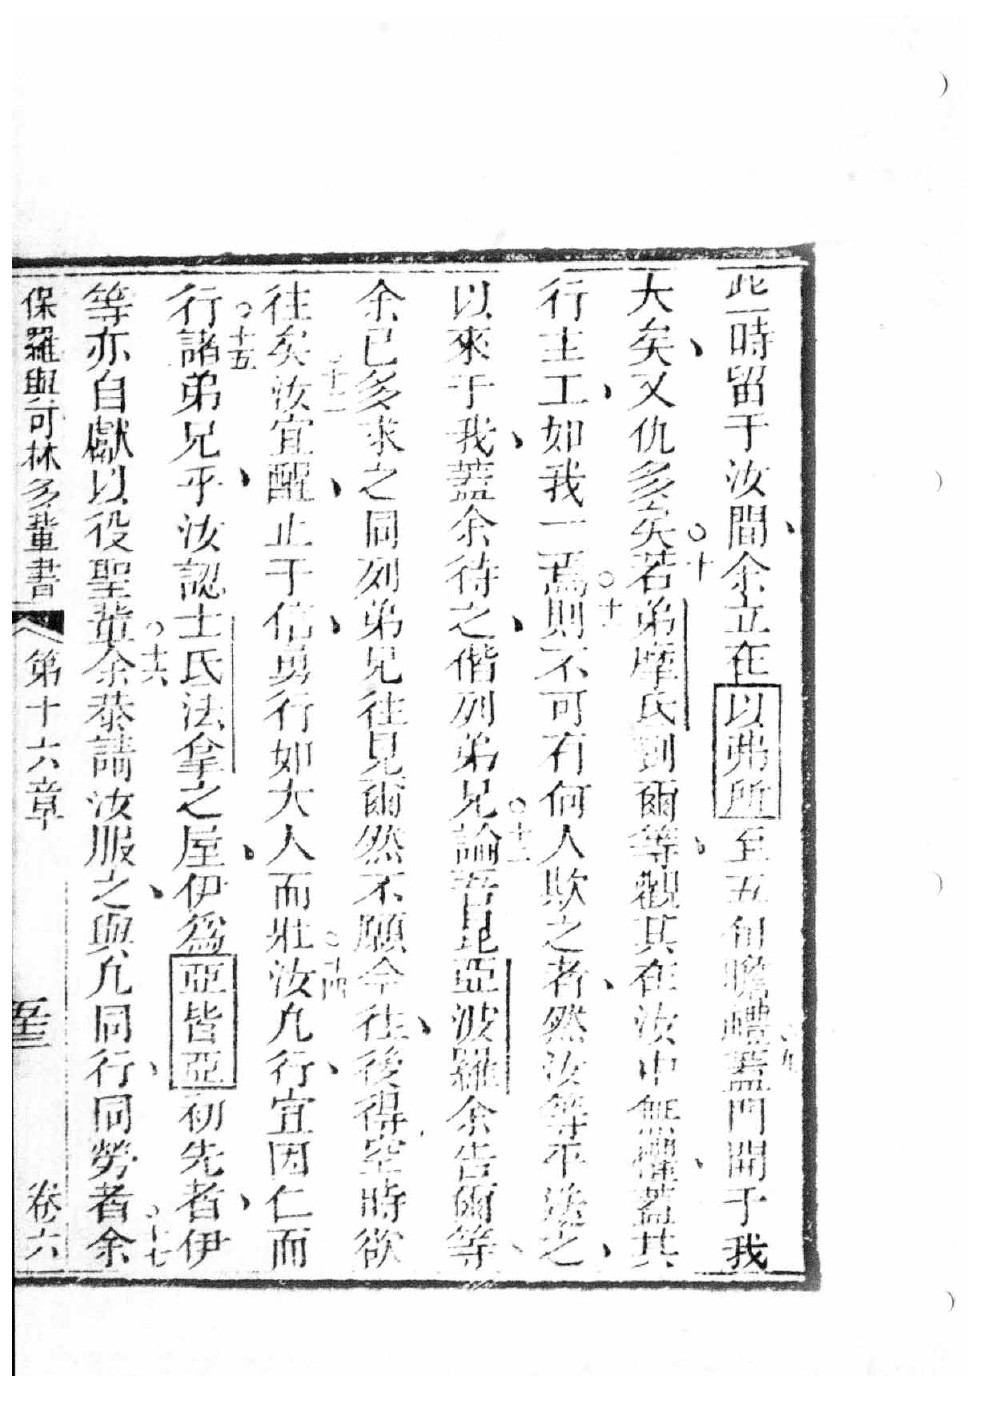 此一時留于汝間余立在以弗所至五旬瞻禮蓋門開于我
大矣又仇多矣若弟摩氐到爾等觀其在汝中無懼蓋其
十
行主工如我一焉則不可有何人欺之者然汝等平送之
十一
以來于我蓋余待之偕列弟兄論吾昆亞波羅余告爾等
十二
余已多求之同列弟兄往見爾然不願今往後得空時欲
往矣汝宜醒止于信勇行如大人而壯汝凡行宜因仁而
十三
十四
行諸弟兄乎汝認士氐法拿之屋伊為亞皆亞初先者伊
十五
等亦自獻以役聖輩余恭請汝服之與凡同行同勞者余
十六
十七
保羅與可林多輩書 第十六章 卷六